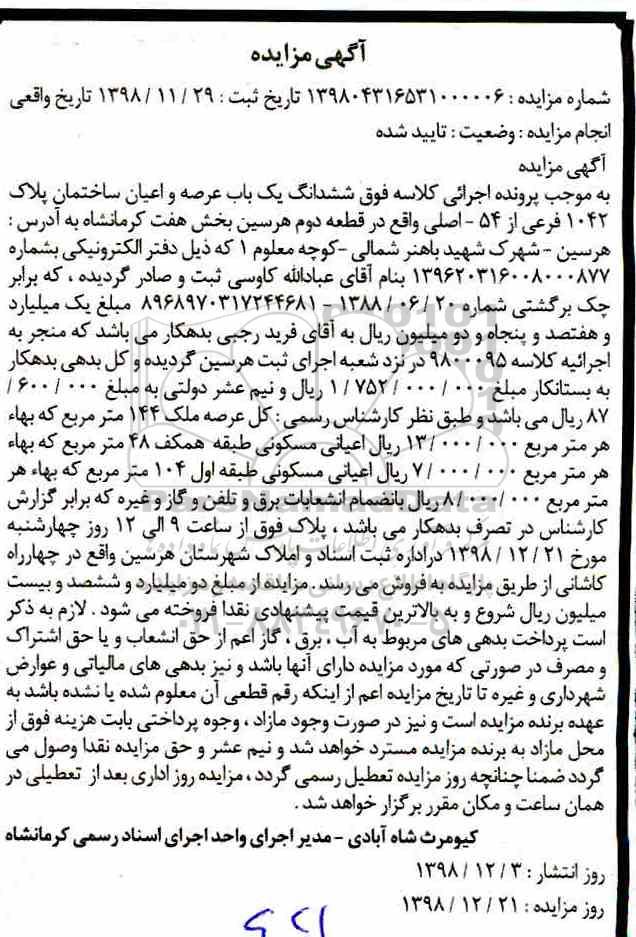 آگهی مزایده
شماره مزایده : ۱۳۹۸۰۴۳۱۶۵۳۱۰۰۰۰۰۶ تاریخ ثبت : ۲۹ / ۱۱ / ۱۳۹۸ تاریخ واقعی
انجام مزایده : وضعیت : تایید شده
آگهی مزایده
به موجب پرونده اجرائی کلاسه فوق ششدانگ یک باب عرصه و اعیان ساختمان پلاک
۱۰۴۲ فرعی از ۵۴ - اصلی واقع در قطعه دوم هرسین بخش هفت کرمانشاه به آدرس :
هرسین - شهرک شهید باهنر شمالی - کوچه معلوم ۱ که ذیل دفتر الکترونیکی بشماره
۱۳۹۶۲۰۳۱۶۰۰۸۰۰۰۸۷۷ بنام آقای عبادالله کاوسی ثبت و صادر گردیده ، که برابر
چک برگشتی شماره ۲۰ / ۰۶ / ۱۳۸۸ - ۸۹۶۸۹۷۰۳۱۷۲۴۴۶۸۱ مبلغ یک میلیارد
و هفتصد و پنجاه و دو میلیون ریال به آقای فرید رجبی بدهکار می باشد که منجر به
اجرائیه کلاسه ۹۸۰۰۰۹۵ در نزد شعبه اجرای ثبت هرسین گردیده و کل بدهی بدهکار
به بستانکار مبلغ ۰۰۰ / ۰۰۰ / ۷۵۲ / ۱ ریال و نیم عشر دولتی به مبلغ ۰۰۰ / ۶۰۰ /
۸۷ ریال می باشد و طبق نظر کارشناس رسمی : کل عرصه ملک ۱۴۴ متر مربع که بهاء
هر متر مربع ۰۰۰ / ۰۰۰ / ۱۳ ریال اعیانی مسکونی طبقه همکف ۴۸ متر مربع که بهاء
هر متر مربع ۰۰۰ / ۰۰۰ / ۷ ریال اعیانی مسکونی طبقه اول ۱۰۴ متر مربع که بهاء هر
متر مربع ۰۰۰ / ۰۰۰ / ۸ ریال بانضمام انشعابات برق و تلفن و گاز و غیره که برابر گزارش
کارشناس در تصرف بدهکار می باشد ، پلاک فوق از ساعت ۹ الی ۱۲ روز چهارشنبه
مورخ ۲۱ / ۱۲ / ۱۳۹۸ دراداره ثبت اسناد و املاک شهرستان هرسین واقع در چهارراه
کاشانی از طریق مزایده به فروش می رسد . مزایده از مبلغ دو میلیارد و ششصد و بیست
میلیون ریال شروع و به بالاترین قیمت پیشنهادی نقدا فروخته می شود . لازم به ذکر
است پرداخت بدهی های مربوط به آب ، برق ، گاز اعم از حق انشعاب و یا حق اشتراک
و مصرف در صورتی که مورد مزایده دارای آنها باشد و نیز بدهی های مالیاتی و عوارض
شهرداری و غیره تا تاریخ مزایده اعم از اینکه رقم قطعی آن معلوم شده یا نشده باشد به
عهده برنده مزایده است و نیز در صورت وجود مازاد ، وجوه پرداختی بابت هزینه فوق از
محل مازاد به برنده مزایده مسترد خواهد شد و نیم عشر و حق مزایده نقدا وصول می
گردد ضمنا چنانچه روز مزایده تعطیل رسمی گردد ، مزایده روز اداری بعد از تعطیلی در
همان ساعت و مکان مقرر برگزار خواهد شد .
کیومرث شاه آبادی - مدیر اجرای واحد اجرای اسناد رسمی کرمانشاه
روز انتشار : ۳ / ۱۲ / ۱۳۹۸
روز مزایده : ۲۱ / ۱۲ / ۱۳۹۸